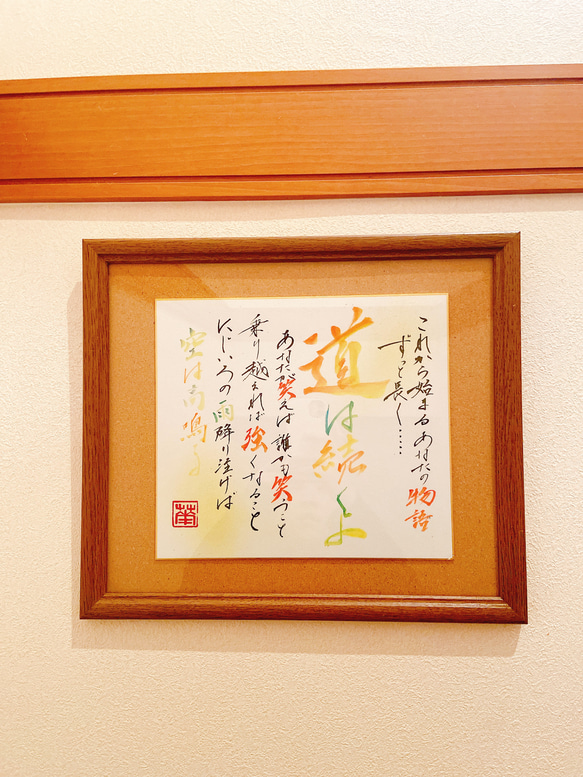 これから始まるあなたの物語
ずっと長く……
道は続くよ
あなたが笑えば誰かも笑うこと
乗り越えれば強くなること
にじいろの雨降り注げば
空は高鳴る